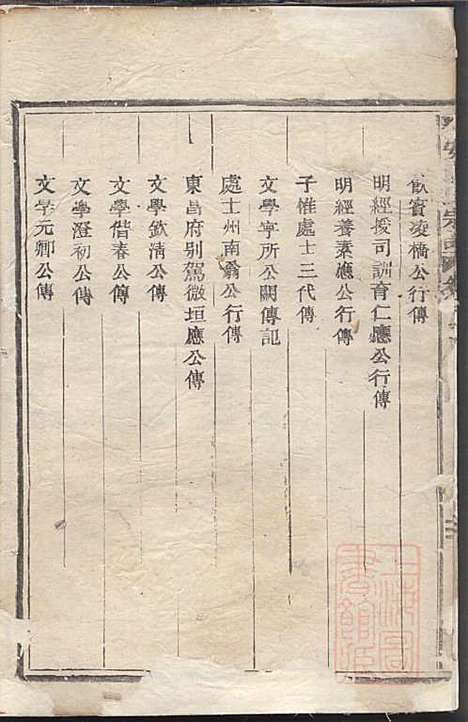 飲賓凌橋公行傳
明經授司訓育仁應公行傳
明經養素應公行傳
子惟處士三代傳
文學寧所公闕傳記
處士州南翁公行傳
東昌府別駕微垣應公傳
文學欽清公傳
文學偕春公傳
文學澄初公傳
文學元卿公傳